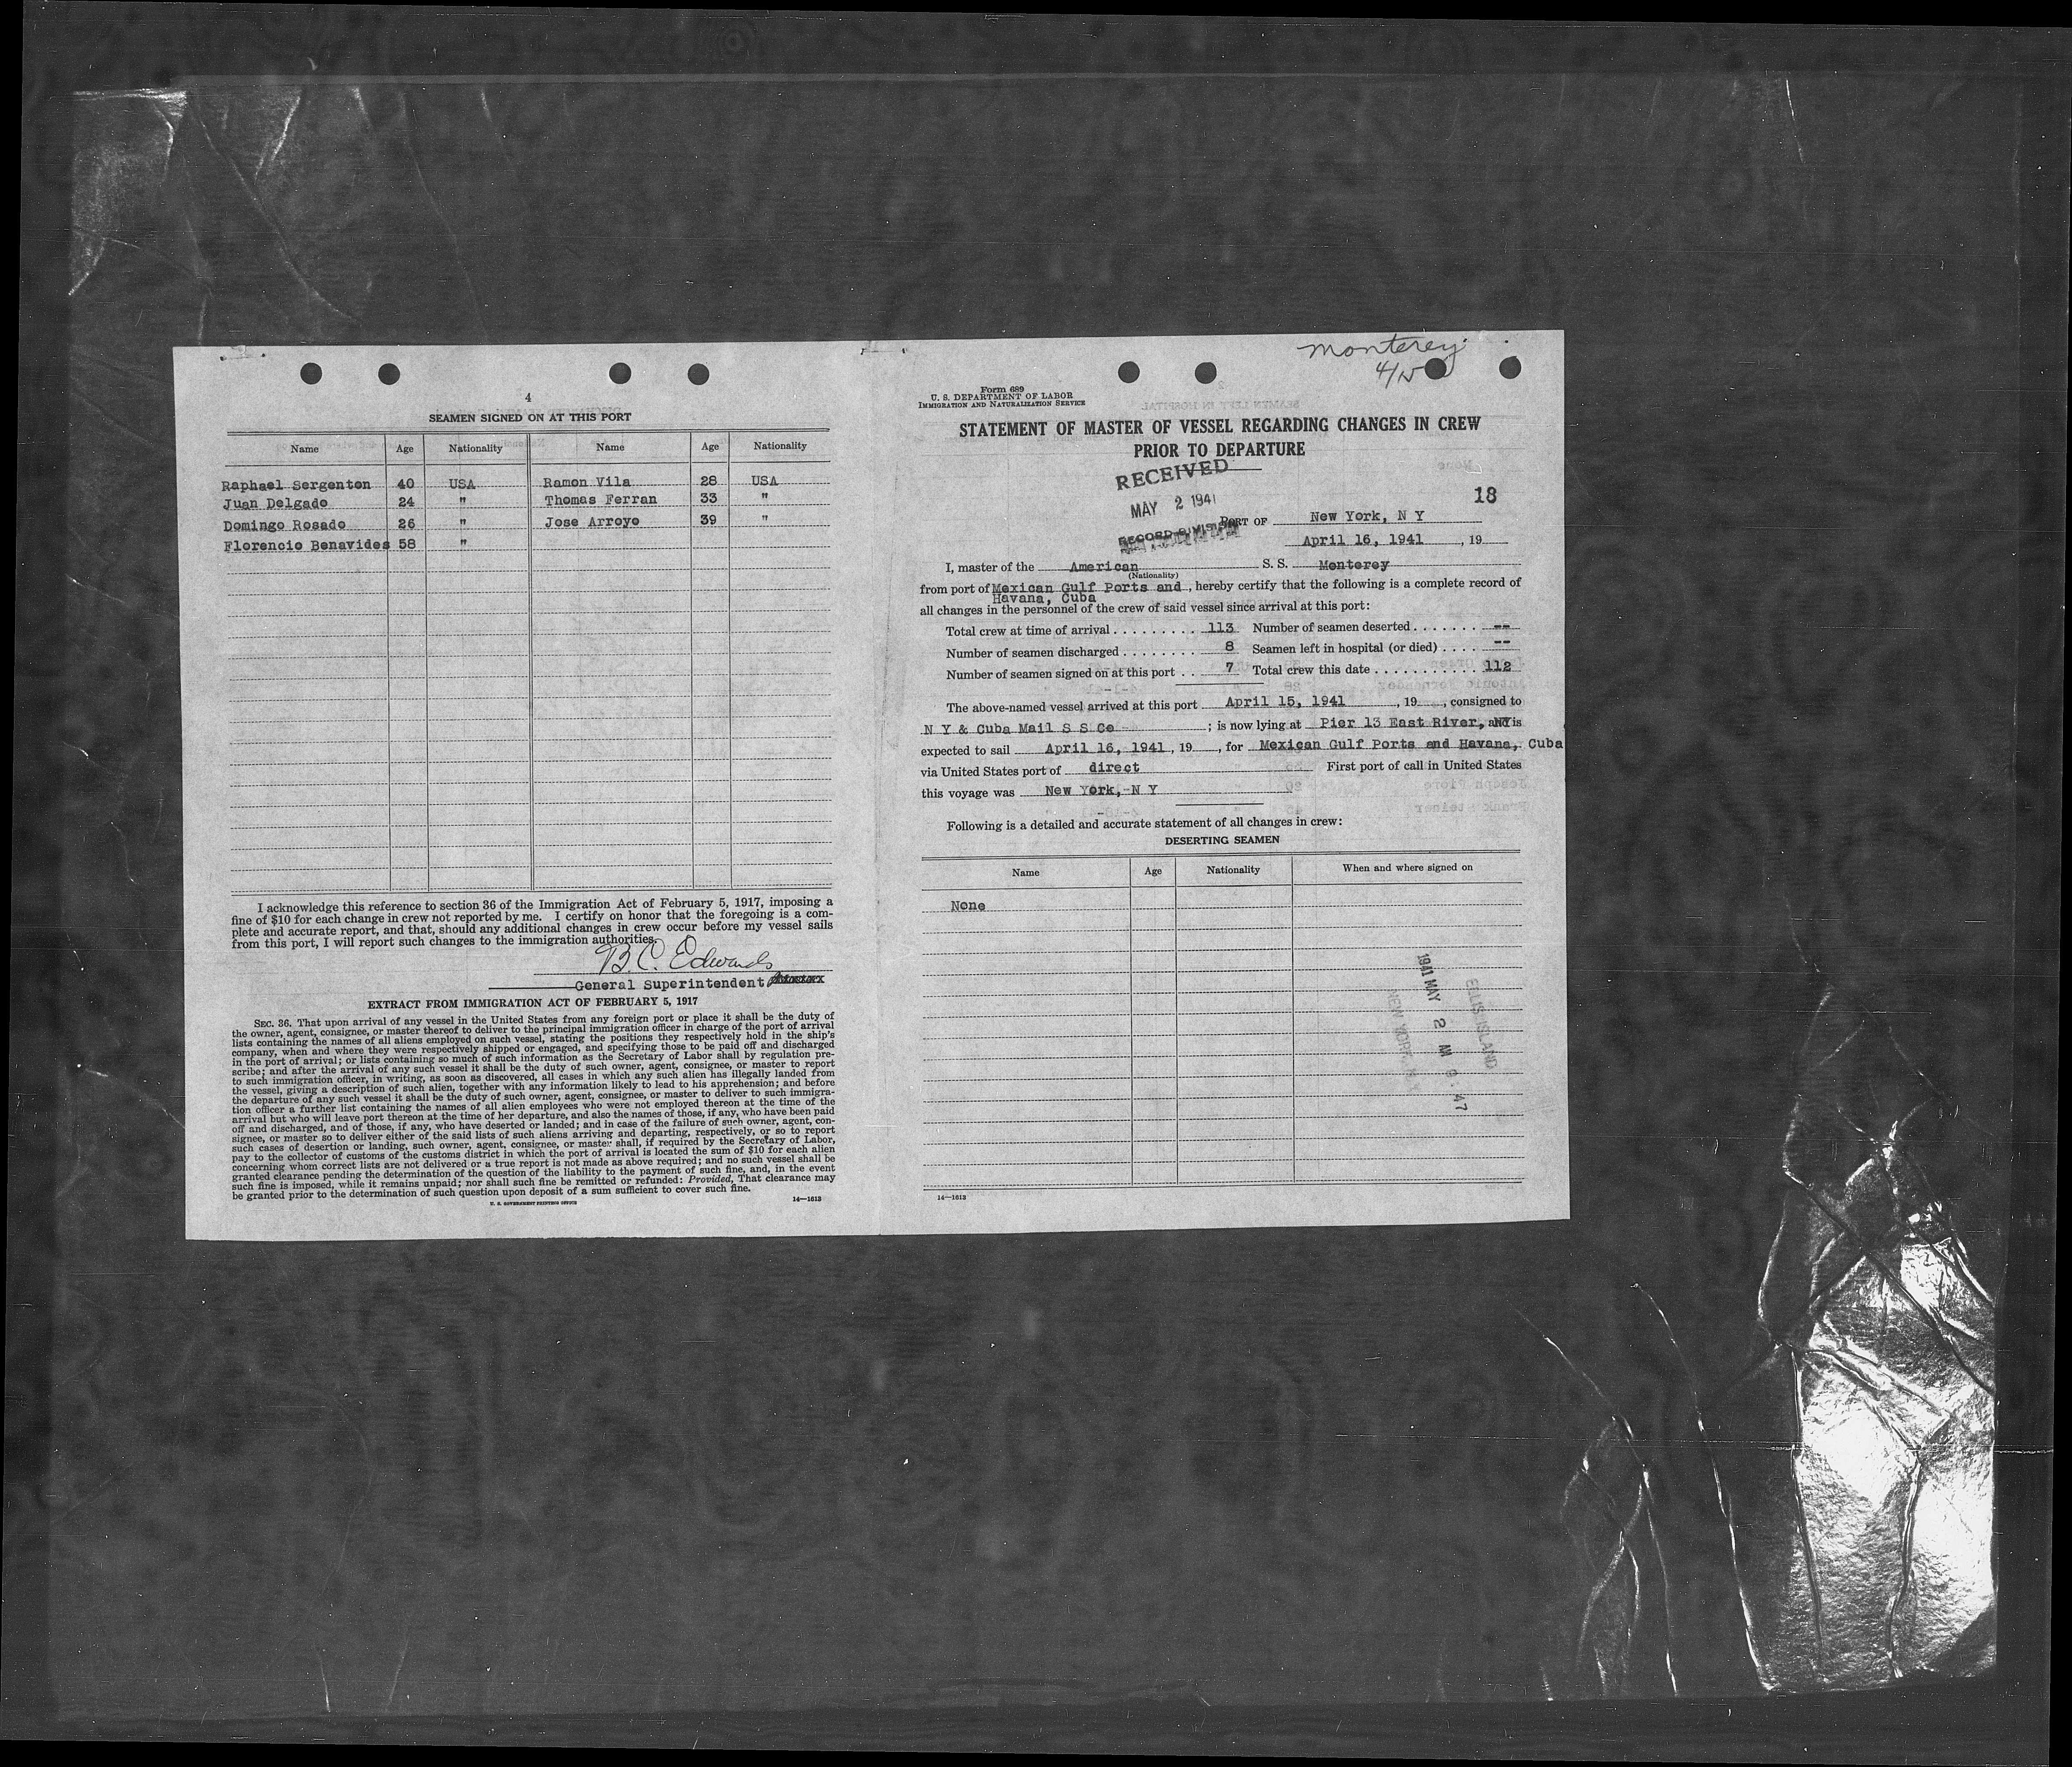 4
SEAMEN SIGNED ON AT THIS PORT
Name Age Nationality Name Age Nationality
Raphael Sergenton 40 USA Ramon Vila 28 USA
Juan Delgado 24 " Thomas Ferran 33 "
Domingo Rosado 26 " Jose Arroyo 39 "
Florencio Benavides 58 "
I acknowledge this reference to section 36 of the Immigration Act of February 5, 1917, imposing a
fine of $10 for each change in crew not reported by me. I certify on honor that the foregoing is a com-
plete and accurate report, and that, should any additional changes in crew occur before my vessel sails
from this port, I will report such changes to the immigration authorities.
B. C. Edwards
General Superintendent
EXTRACT FROM IMMIGRATION ACT OF FEBRUARY 5, 1917
SEC. 36. That upon arrival of any vessel in the United States from any foreign port or place it shall be the duty of
the owner, agent, consignee, or master thereof to deliver to the principal immigration officer in charge of the port of arrival
lists containing the names of all aliens employed on such vessel, stating the positions they respectively hold in the ship's
company, when and where they were respectively shipped or engaged, and specifying those to be paid off and discharged
in the port of arrival; or lists containing so much of such information as the Secretary of Labor shall by regulation pre-
scribe; and after the arrival of any such vessel it shall be the duty of such owner, agent, consignee, or master to report
to such immigration officer, in writing, as soon as discovered, all cases in which any such alien has illegally landed from
the vessel, giving a description of such alien, together with any information likely to lead to his apprehension; and before
the departure of any such vessel it shall be the duty of such owner, agent, consignee, or master to deliver to such immigra-
tion officer a further list containing the names of all alien employees who were not employed thereon at the time of the
arrival but who will leave port thereon at the time of her departure, and also the names of those, if any, who have been paid
off and discharged, and of those, if any, who have deserted or landed; and in case of the failure of such owner, agent, con-
signee, or master so to deliver either of the said lists of such aliens arriving and departing, respectively, or so to report
such cases of desertion or landing, such owner, agent, consignee, or master shall, if required by the Secretary of Labor,
pay to the collector of customs of the customs district in which the port of arrival is located the sum of $10 for each alien
concerning whom correct lists are not delivered or a true report is not made as above required; and no such vessel shall be
granted clearance pending the determination of the question of the liability to the payment of such fine, and, in the event
such fine is imposed, while it remains unpaid; nor shall such fine be remitted or refunded: Provided, That clearance may
be granted prior to the determination of such question upon deposit of a sum sufficient to cover such fine.
U. S. GOVERNMENT PRINTING OFFICE 14—1613
Monterey
4/15
Form 689
U. S. DEPARTMENT OF LABOR
IMMIGRATION AND NATURALIZATION SERVICE
STATEMENT OF MASTER OF VESSEL REGARDING CHANGES IN CREW
PRIOR TO DEPARTURE
RECEIVED
MAY 2 1941
RECORD DIVISION
18
PORT OF New York, N Y
April 16, 1941, 19
I, master of the American S. S. Monterey
(Nationality)
from port of Mexican Gulf Ports and, hereby certify that the following is a complete record of
Havana, Cuba
all changes in the personnel of the crew of said vessel since arrival at this port:
Total crew at time of arrival 113 Number of seamen deserted --
Number of seamen discharged 8 Seamen left in hospital (or died) --
Number of seamen signed on at this port 7 Total crew this date 112
The above-named vessel arrived at this port April 15, 1941, 19, consigned to
N Y & Cuba Mail S S Co; is now lying at Pier 13 East River, NY and is
expected to sail April 16, 1941, 19, for Mexican Gulf Ports and Havana, Cuba
via United States port of direct First port of call in United States
this voyage was New York, N Y
Following is a detailed and accurate statement of all changes in crew:
DESERTING SEAMEN
Name Age Nationality When and where signed on
None
1941 MAY 2 AM 9 47
ELLIS ISLAND
NEW YORK, N.Y.
14—1613